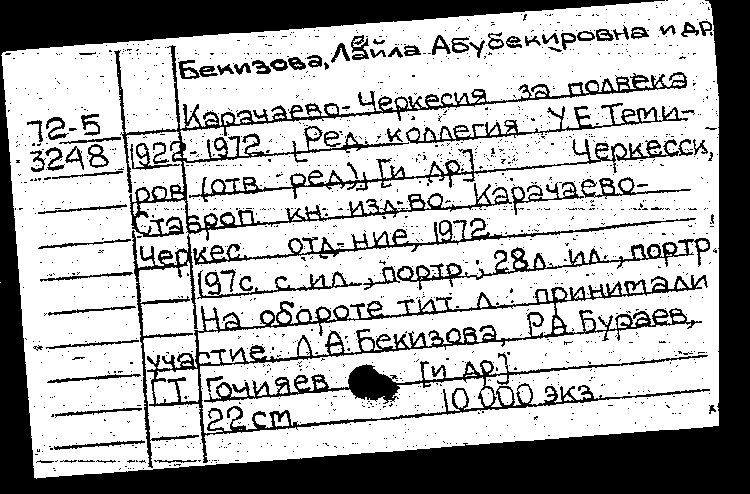 Бекизова, Лайла Абубекировна и др.
72-5 Карачаево-Черкесия за полвека
3248 1922-1972. [Ред. коллегия: У.Е. Теми-
ров (отв. ред.), [и др.]. Черкесск,
Ставроп. кн. изд-во, Карачаево-
Черкес. отд-ние, 1972.
197с. с ил., портр.; 28л. ил., портр.
На обороте тит. л.: принимали
участие: Л.А. Бекизова, Р.А. Бураев,
Г.Т. Гочияев [и др.].
22 cm. 10 000 экз.